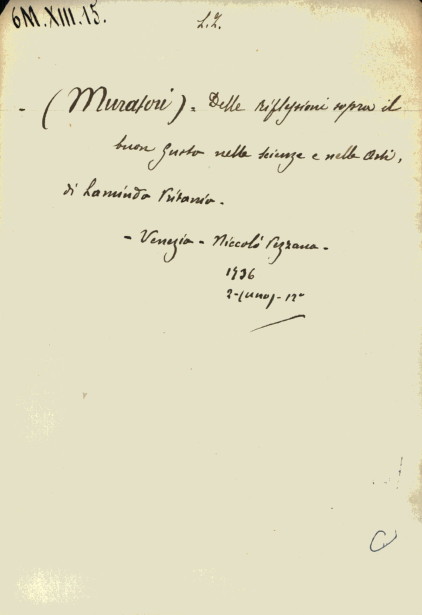 6M.XIII.15.
L.Z.
- (Muratori). Delle riflessioni sopra il
buon gusto nelle scienze e nelle Arti,
di Lamindo Pritanio.
- Venezia - Niccolò Pezzana -
1736
2-(uno)-12°
C